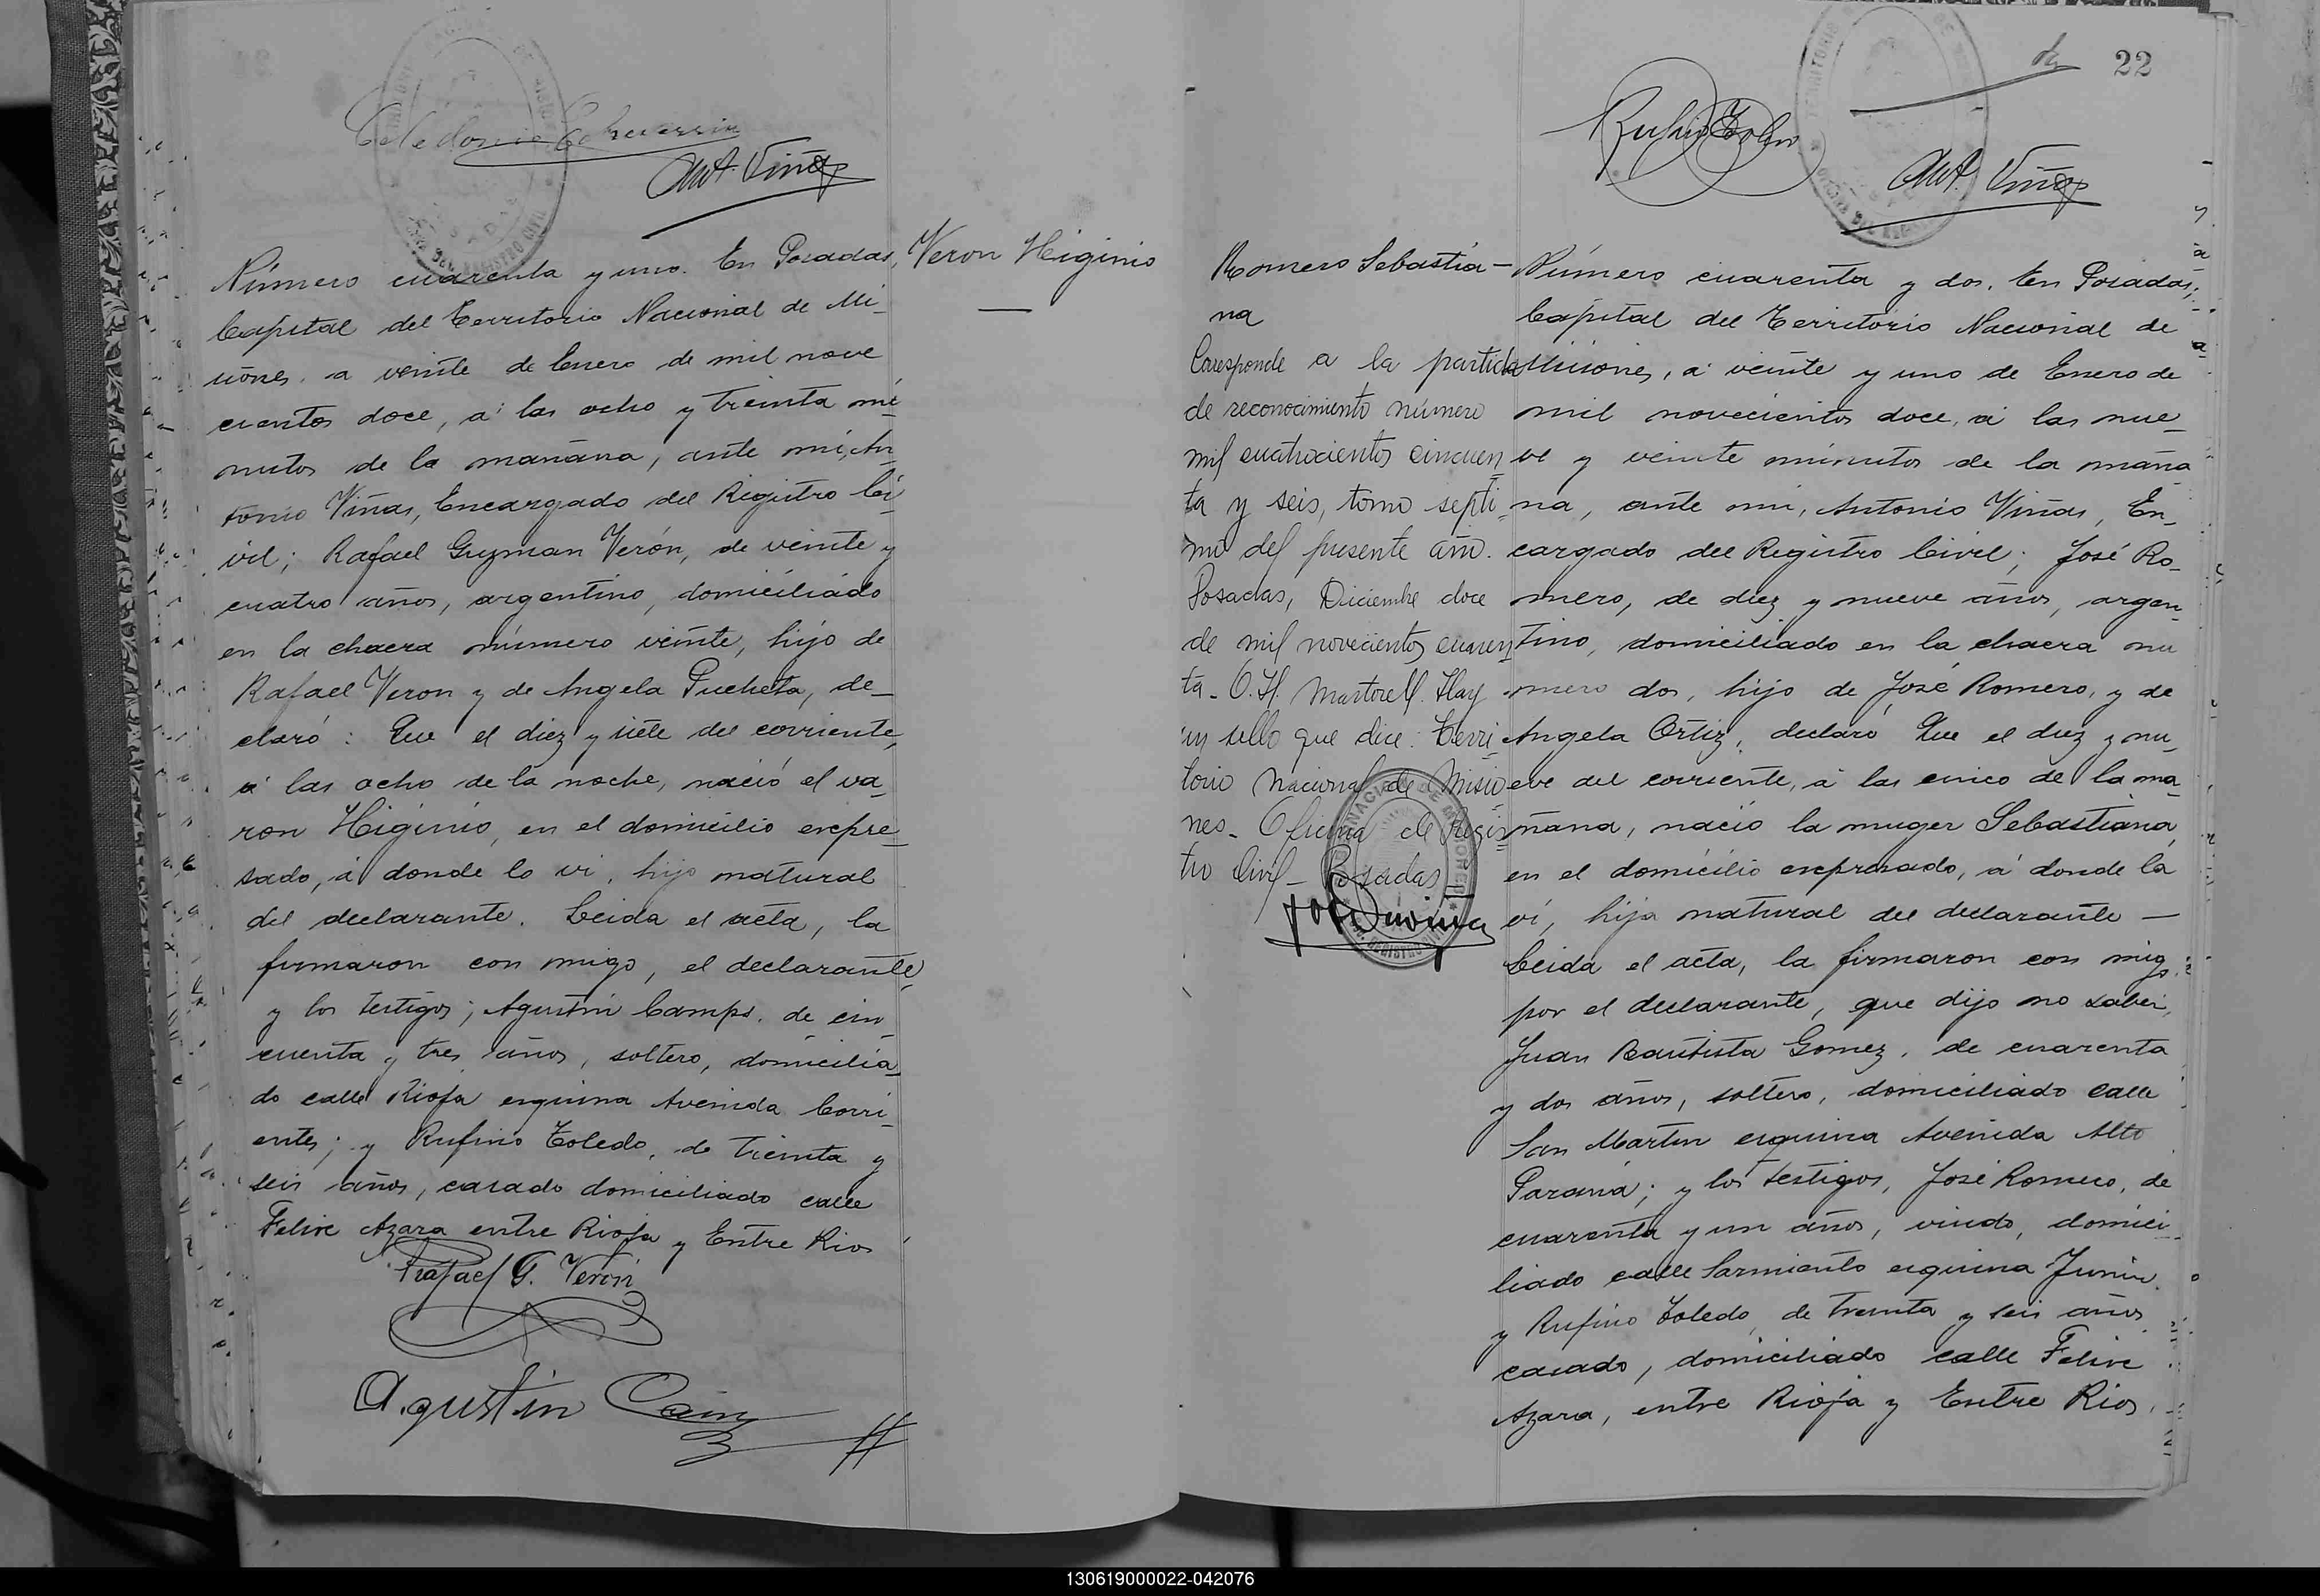 Celedonio Echeverria
Ant. Viñas
Número cuarenta y uno. En Posadas,
Capital del Territorio Nacional de Mi-
siones, a veinte de Enero de mil nove
cientos doce, á las ocho y treinta mi-
nutos de la mañana, ante mi, An-
tonio Viñas, Encargado del Registro Ci-
vil; Rafael Guzman Verón, de veinte y
cuatro años, argentino, domiciliado
en la chacra número veinte, hijo de
Rafael Veron y de Angela Pucheta, de-
claró: Que el diez y siete del corriente,
á las ocho de la noche, nació el va-
ron Higinio, en el domicilio expre-
sado, á donde lo vi, hijo natural
del declarante. Leida el acta, la
firmaron con migo, el declarante
y los testigos; Agustin Camps, de cin-
cuenta y tres años, soltero, domicilia-
do calle Rioja esquina Avenida Corri-
entes; y Rufino Toledo, de treinta y
seis años, casado domiciliado calle
Felix Azara entre Rioja y Entre Rios
Rafael G. Verón
Agustin Camps
Veron Higinio
22
Rufino Toledo
Ant. Viñas
Romero Sebastia-
na
Corresponde a la partida
de reconocimiento número
mil cuatrocientos cincuen-
ta y seis, tomo septi-
mo del presente año.
Posadas, Diciembre doce
de mil novecientos cuaren-
ta_ O.H. Martorell. Hay
un sello que dice: Terri-
torio Nacional de Misio
nes_ Oficina de Regis-
tro Civil_ Posadas_
Número cuarenta y dos. En Posadas,
Capital del Territorio Nacional de
Misiones, á veinte y uno de Enero de
mil novecientos doce, á las nue-
ve y veinte minutos de la maña
na, ante mi, Antonio Viñas, En-
cargado del Registro Civil; José Ro-
mero, de diez y nueve años, argen-
tino, domiciliado en la chacra nu
mero dos, hijo de José Romero, y de
Angela Ortiz, declaró Que el diez y nu-
eve del corriente, á las cinco de la ma-
ñana, nació la muger Sebastiana,
en el domicilio expresado, á donde la
ví, hija natural del declarante —
Leida el acta, la firmaron con migo,
por el declarante, que dijo no saber,
Juan Bautista Gomez, de cuarenta
y dos años, soltero, domiciliado calle
San Martin esquina Avenida Alto
Paraná; y los testigos, José Romero, de
cuarenta y un años, viudo, domici-
liado calle Sarmiento esquina Junin
y Rufino Toledo, de treinta y seis años
casado, domiciliado calle Felix
Azara, entre Rioja y Entre Rios,
130619000022-042076